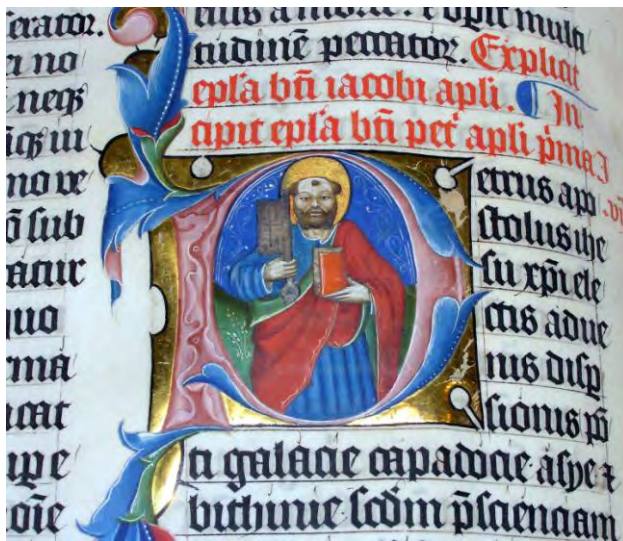 serator.
ei no
neqꝫ
iqꝫ iu
mo ve
ō sub
atur
quo
rmā
icat
upe
oīe
eius a morte. ⁊ opit multi
tudinē peccator. Explicit
epl'a bt̄i iacobi apli. In
cipit epl'a bt̄i pet' apli p̄ma
P
etrus apo
stolus ihe
su xp̄i ele
ctis adue
nis disp
sionis pō
ti galacie capadocie asye ⁊
bithinie scd̄m p̄scienciam